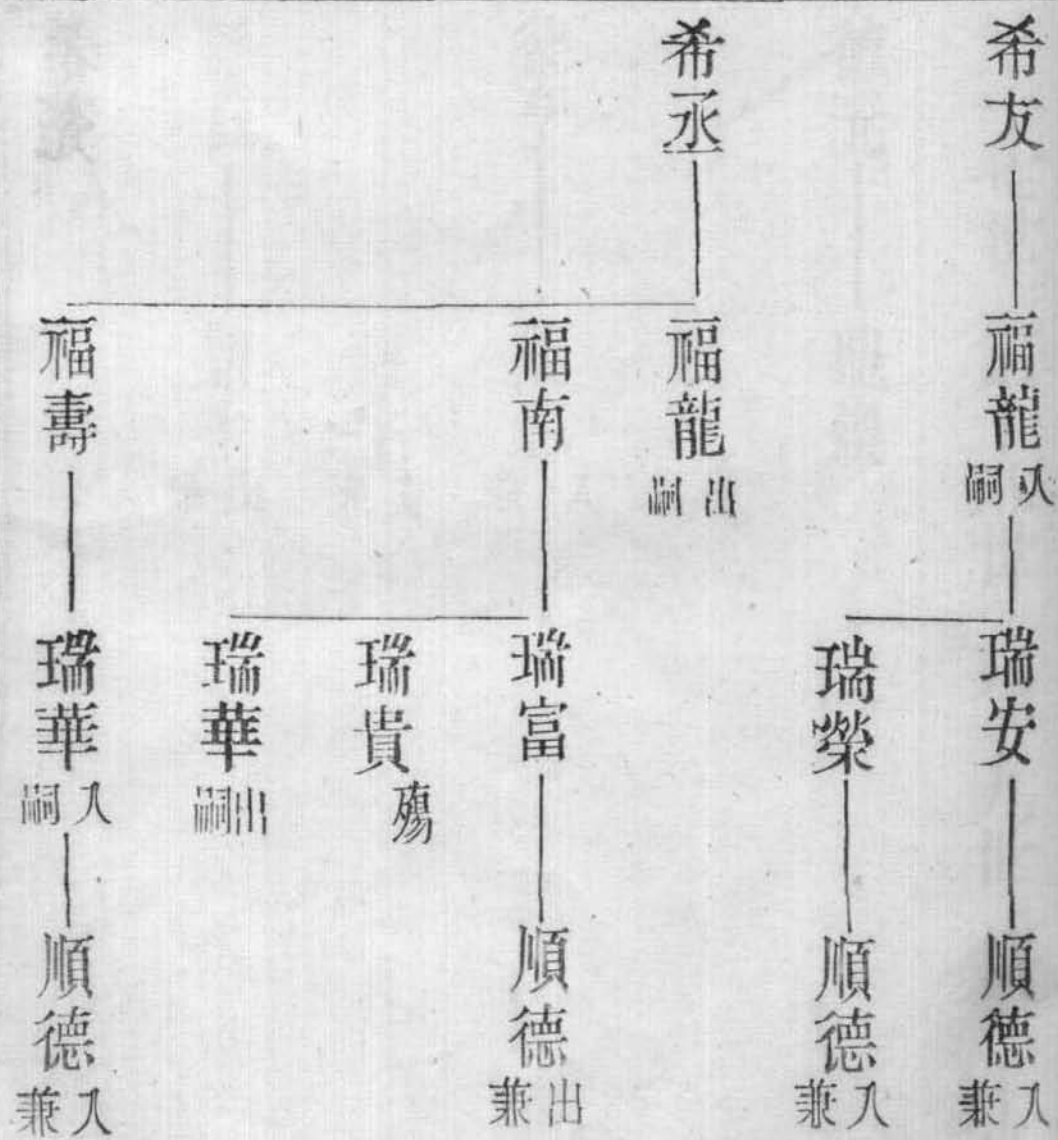 希友
福龍
入嗣
瑞安
順德
入兼
瑞榮
順德
入兼
希丞
福龍
出嗣
福南
瑞富
順德
出兼
瑞貴
殤
瑞華
出嗣
福壽
瑞華
入嗣
順德
入兼